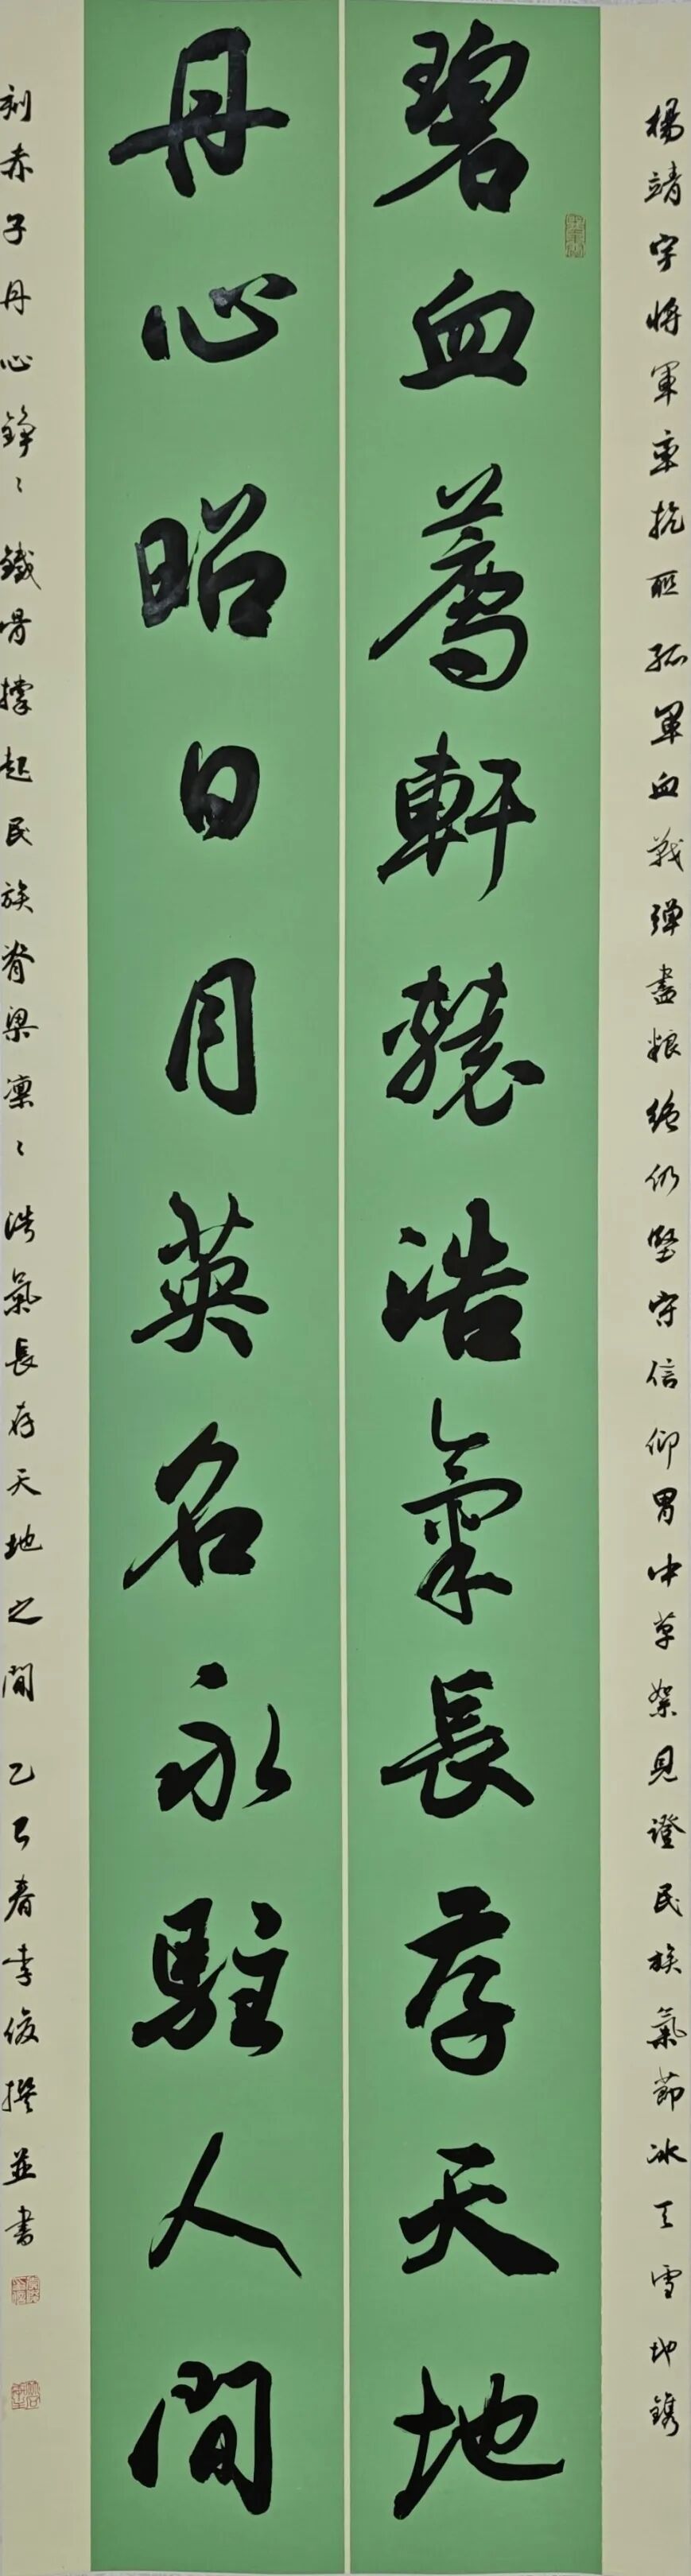 楊靖宇將軍率抗聯孤軍血戰彈盡糧絕仍堅守信仰胃中草絮見證民族氣節冰天雪地鐫
碧血薦軒轅浩氣長存天地
丹心昭日月英名永駐人間
刻赤子丹心錚〻鐵骨撐起民族脊梁凜〻浩氣長存天地之間 乙巳春李俊撰並書